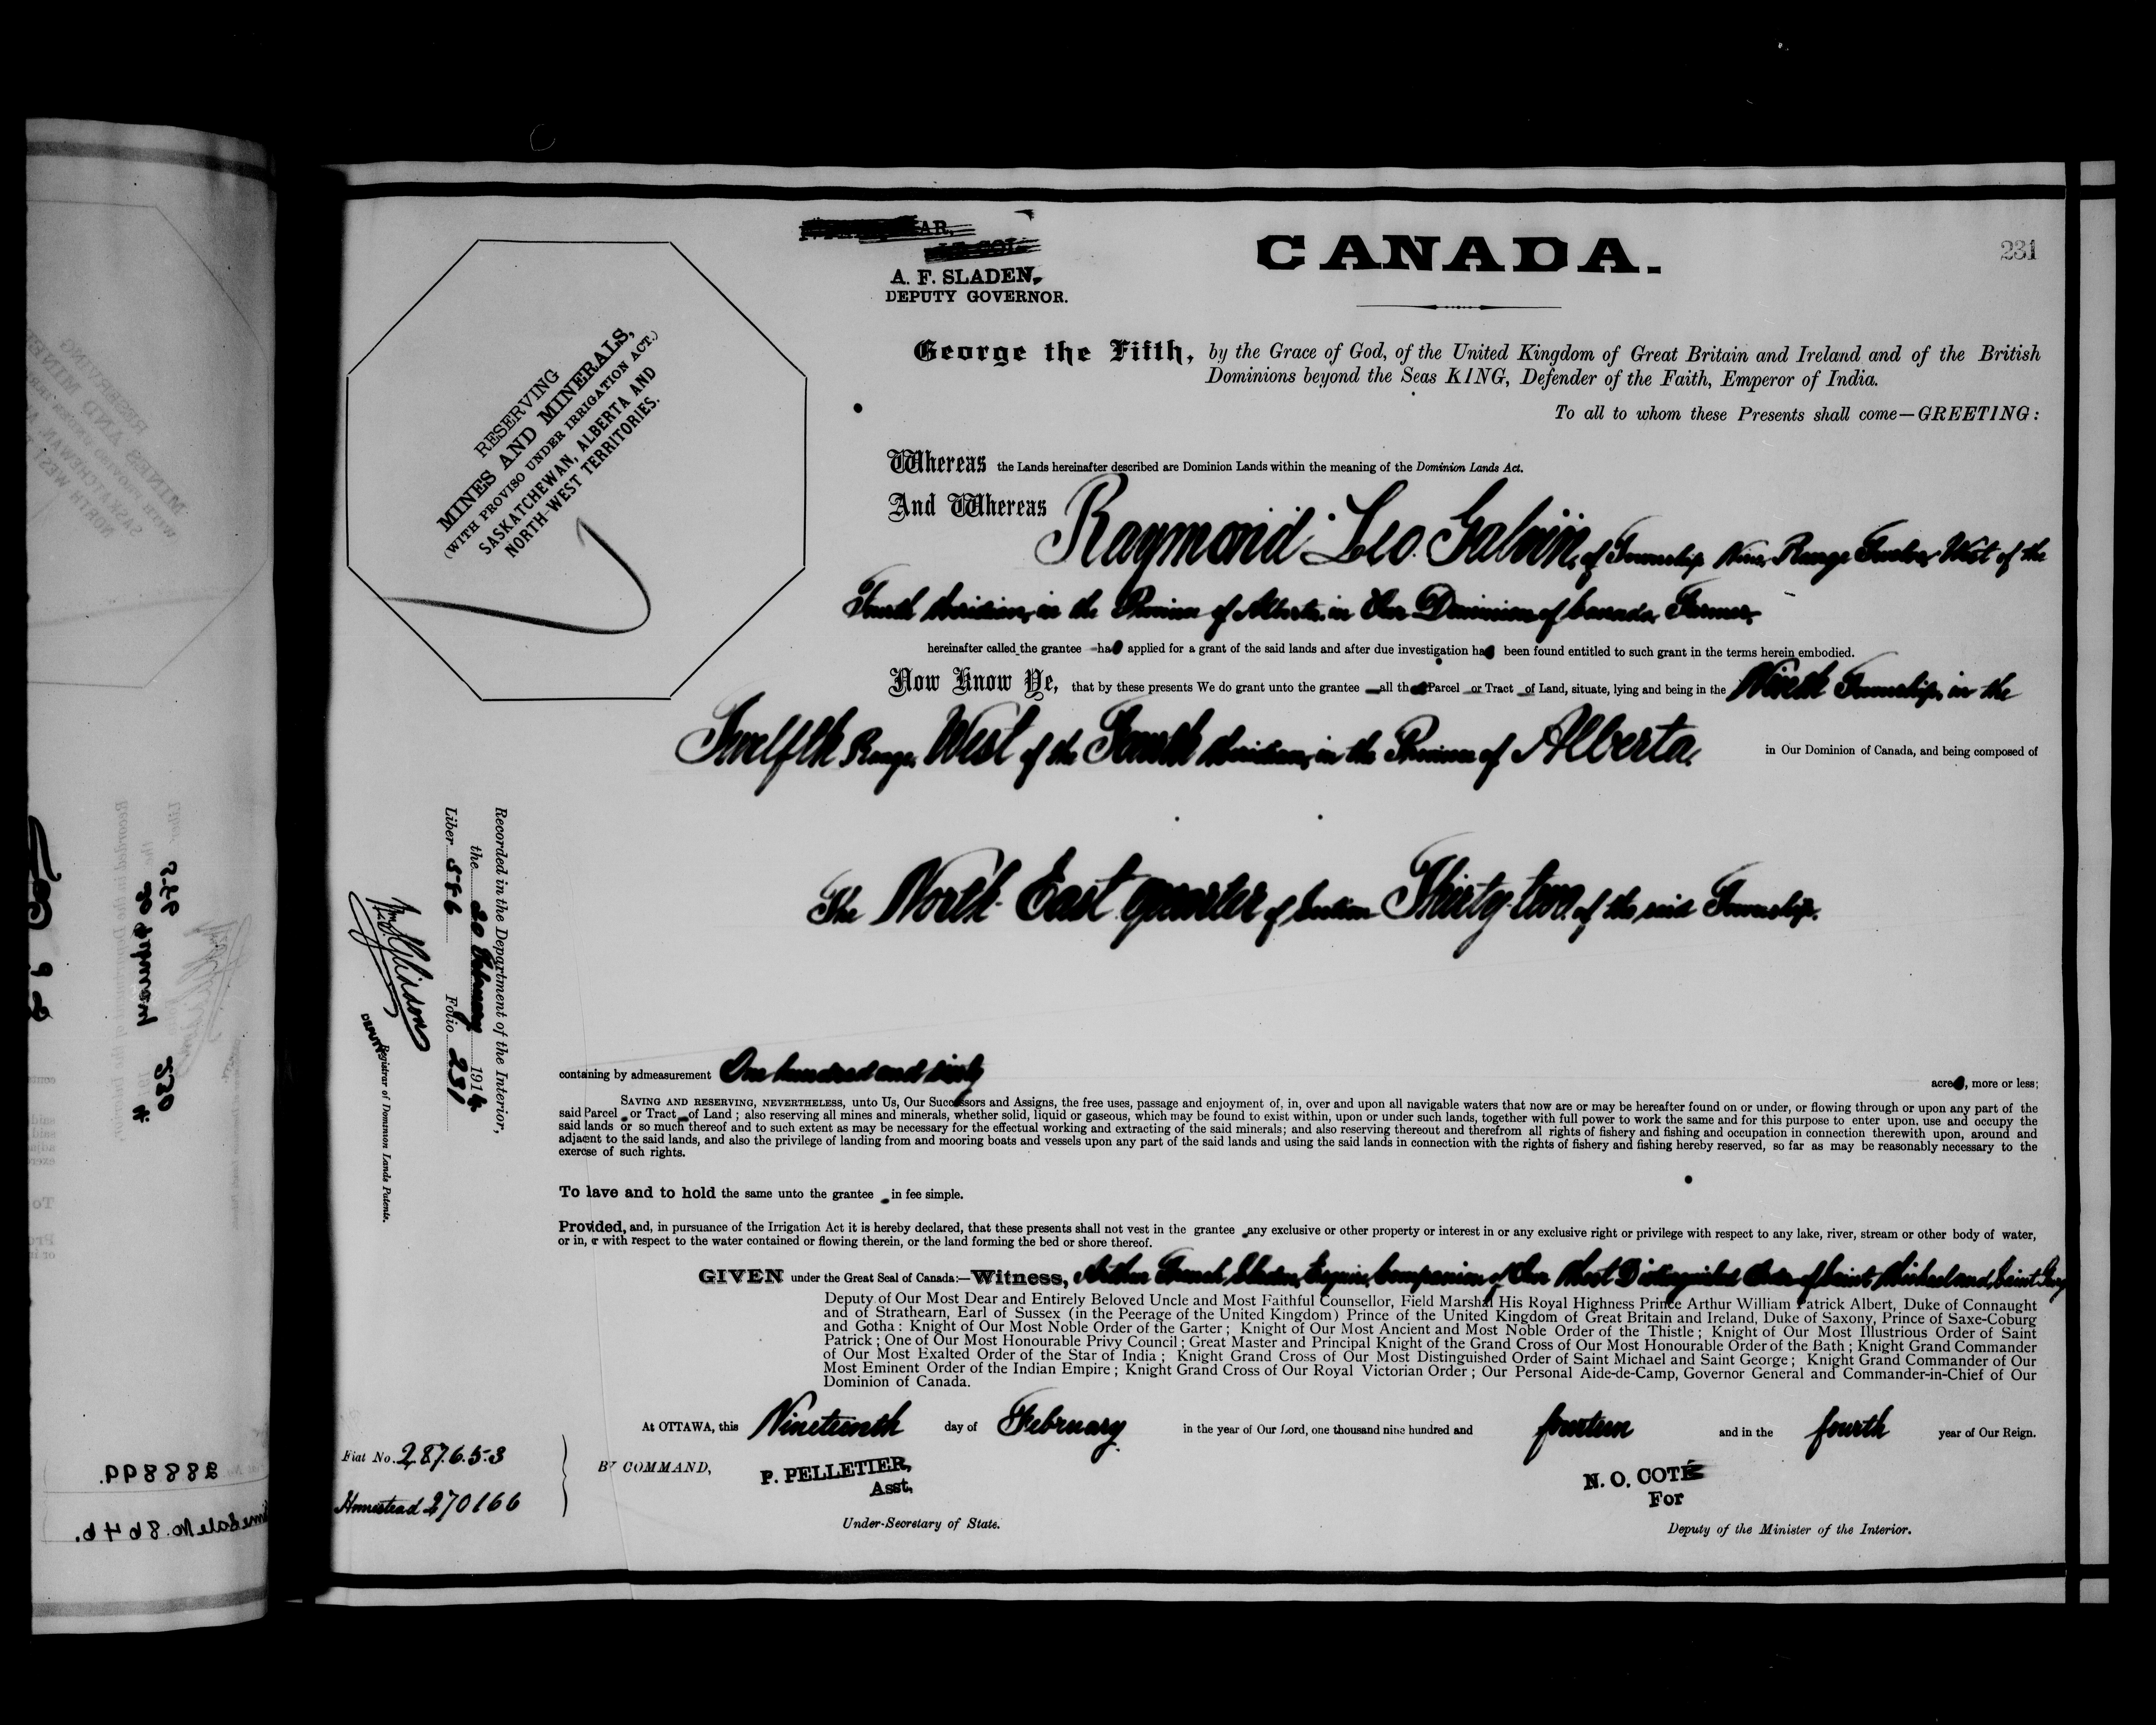 A. F. SLADEN,
DEPUTY GOVERNOR.
CANADA.
231
RESERVING
MINES AND MINERALS,
(WITH PROVISO UNDER IRRIGATION ACT.)
SASKATCHEWAN, ALBERTA AND
NORTH-WEST TERRITORIES.
George the Fifth, by the Grace of God, of the United Kingdom of Great Britain and Ireland and of the British
Dominions beyond the Seas KING, Defender of the Faith, Emperor of India.
To all to whom these Presents shall come—GREETING:
Whereas the Lands hereinafter described are Dominion Lands within the meaning of the Dominion Lands Act.
And Whereas Raymond Leo Galvin, of Township Nine, Range Twelve, West of the
Fourth Meridian, in the Province of Alberta, in Our Dominion of Canada, Farmer,
hereinafter called the grantee has applied for a grant of the said lands and after due investigation has been found entitled to such grant in the terms herein embodied.
Now Know Ye, that by these presents We do grant unto the grantee all that Parcel or Tract of Land, situate, lying and being in the Ninth Township, in the
Twelfth Range, West of the Fourth Meridian, in the Province of Alberta, in Our Dominion of Canada, and being composed of
The North East quarter of Section Thirty-two, of the said Township.
Recorded in the Department of the Interior,
the 20 February 1914
Liber 566 Folio 231
DEPUTY Registrar of Dominion Lands Patents.
containing by admeasurement One hundred and sixty acres, more or less;
SAVING AND RESERVING, NEVERTHELESS, unto Us, Our Successors and Assigns, the free uses, passage and enjoyment of, in, over and upon all navigable waters that now are or may be hereafter found on or under, or flowing through or upon any part of the
said Parcel or Tract of Land; also reserving all mines and minerals, whether solid, liquid or gaseous, which may be found to exist within, upon or under such lands, together with full power to work the same and for this purpose to enter upon, use and occupy the
said lands or so much thereof and to such extent as may be necessary for the effectual working and extracting of the said minerals; and also reserving thereout and therefrom all rights of fishery and fishing and occupation in connection therewith upon, around and
adjacent to the said lands, and also the privilege of landing from and mooring boats and vessels upon any part of the said lands and using the said lands in connection with the rights of fishery and fishing hereby reserved, so far as may be reasonably necessary to the
exercise of such rights.
To have and to hold the same unto the grantee in fee simple.
Provided, and, in pursuance of the Irrigation Act it is hereby declared, that these presents shall not vest in the grantee any exclusive or other property or interest in or any exclusive right or privilege with respect to any lake, river, stream or other body of water,
or in, or with respect to the water contained or flowing therein, or the land forming the bed or shore thereof.
GIVEN under the Great Seal of Canada:—Witness, Arthur French Sladen, Esquire, Companion of Our Most Distinguished Order of Saint Michael and Saint George
Deputy of Our Most Dear and Entirely Beloved Uncle and Most Faithful Counsellor, Field Marshal His Royal Highness Prince Arthur William Patrick Albert, Duke of Connaught
and of Strathearn, Earl of Sussex (in the Peerage of the United Kingdom) Prince of the United Kingdom of Great Britain and Ireland, Duke of Saxony, Prince of Saxe-Coburg
and Gotha: Knight of Our Most Noble Order of the Garter; Knight of Our Most Ancient and Most Noble Order of the Thistle; Knight of Our Most Illustrious Order of Saint
Patrick; One of Our Most Honourable Privy Council; Great Master and Principal Knight of the Grand Cross of Our Most Honourable Order of the Bath; Knight Grand Commander
of Our Most Exalted Order of the Star of India; Knight Grand Cross of Our Most Distinguished Order of Saint Michael and Saint George; Knight Grand Commander of Our
Most Eminent Order of the Indian Empire; Knight Grand Cross of Our Royal Victorian Order; Our Personal Aide-de-Camp, Governor General and Commander-in-Chief of Our
Dominion of Canada.
At OTTAWA, this Nineteenth day of February in the year of Our Lord, one thousand nine hundred and fourteen and in the fourth year of Our Reign.
Fiat No. 287653
Homestead 270166
BY COMMAND,
P. PELLETIER,
Asst.
Under-Secretary of State.
N. O. COTÉ
For
Deputy of the Minister of the Interior.